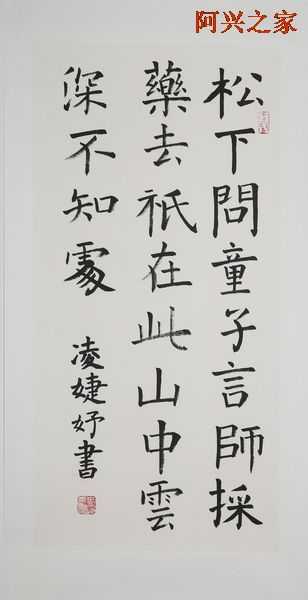 阿兴之家
松下問童子言師採
藥去祇在此山中雲
深不知處
凌婕妤書